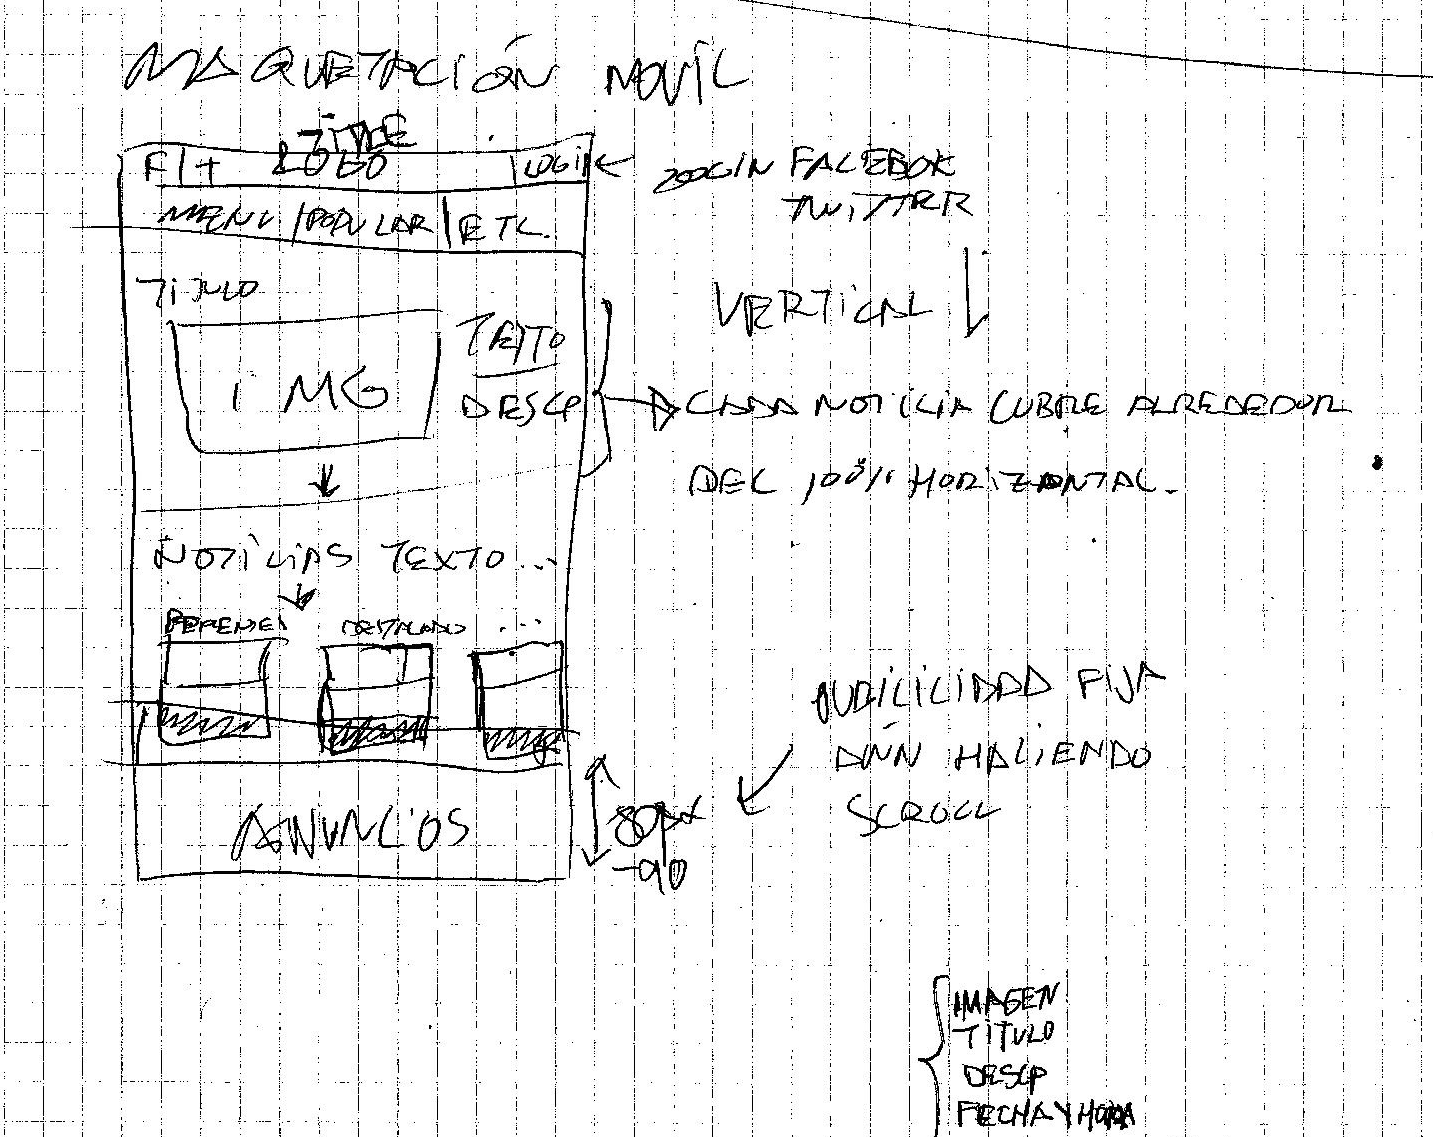 MAQUETACIÓN MOVIL
TITLE
F | t LOGO | LOGIN
LOGIN FACEBOK
TWITTER
MENU | POPULAR | ETC.
TITULO
IMG
TEXTO
DESCP
VERTICAL
CADA NOTICIA CUBRE ALREDEDOR
DEL 100% HORIZONTAL.
NOTICIAS TEXTO...
DESTACADO ...
PUBLICIDAD FIJA
AÚN HACIENDO
SCROLL
ANUNCIOS
80px
-90
IMAGEN
TITULO
DESCP
FECHA Y HORA